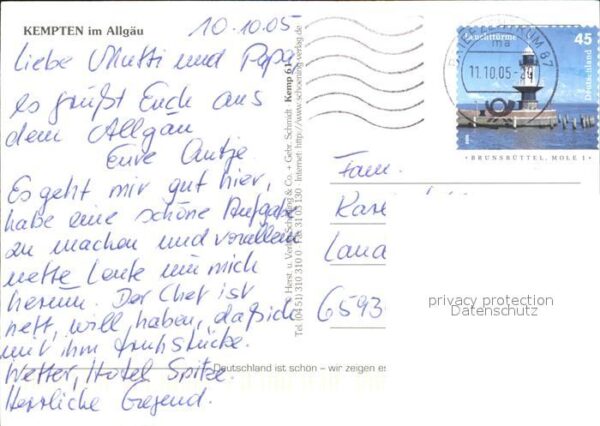 KEMPTEN im Allgäu
10.10.05
Liebe Mutti und Papa
es grüßt Euch aus
dem Allgäu
Eure Antje
Es geht mir gut hier,
habe eine schöne Aufgabe
zu machen und vor allem
nette Leute um mich
herum. Der Chef ist
nett, will haben, daß ich
mit ihm frühstücke.
Wetter, Hotel Spitze.
Herrliche Gegend.
Deutschland ist schön – wir zeigen es
Herst. u. Verlag Schöning & Co. + Gebr. Schmidt Kemp 61
Tel. (04 51) 310 310 0 Fax 31 03 130 Internet: http://www.schoening-verlag.de
BRIEFZENTRUM 87
ma
11.10.05-24
Leuchttürme 45
Deutschland
BRUNSBÜTTEL, MOLE 1
Fam.
Kase
Lana
6593
privacy protection
Datenschutz